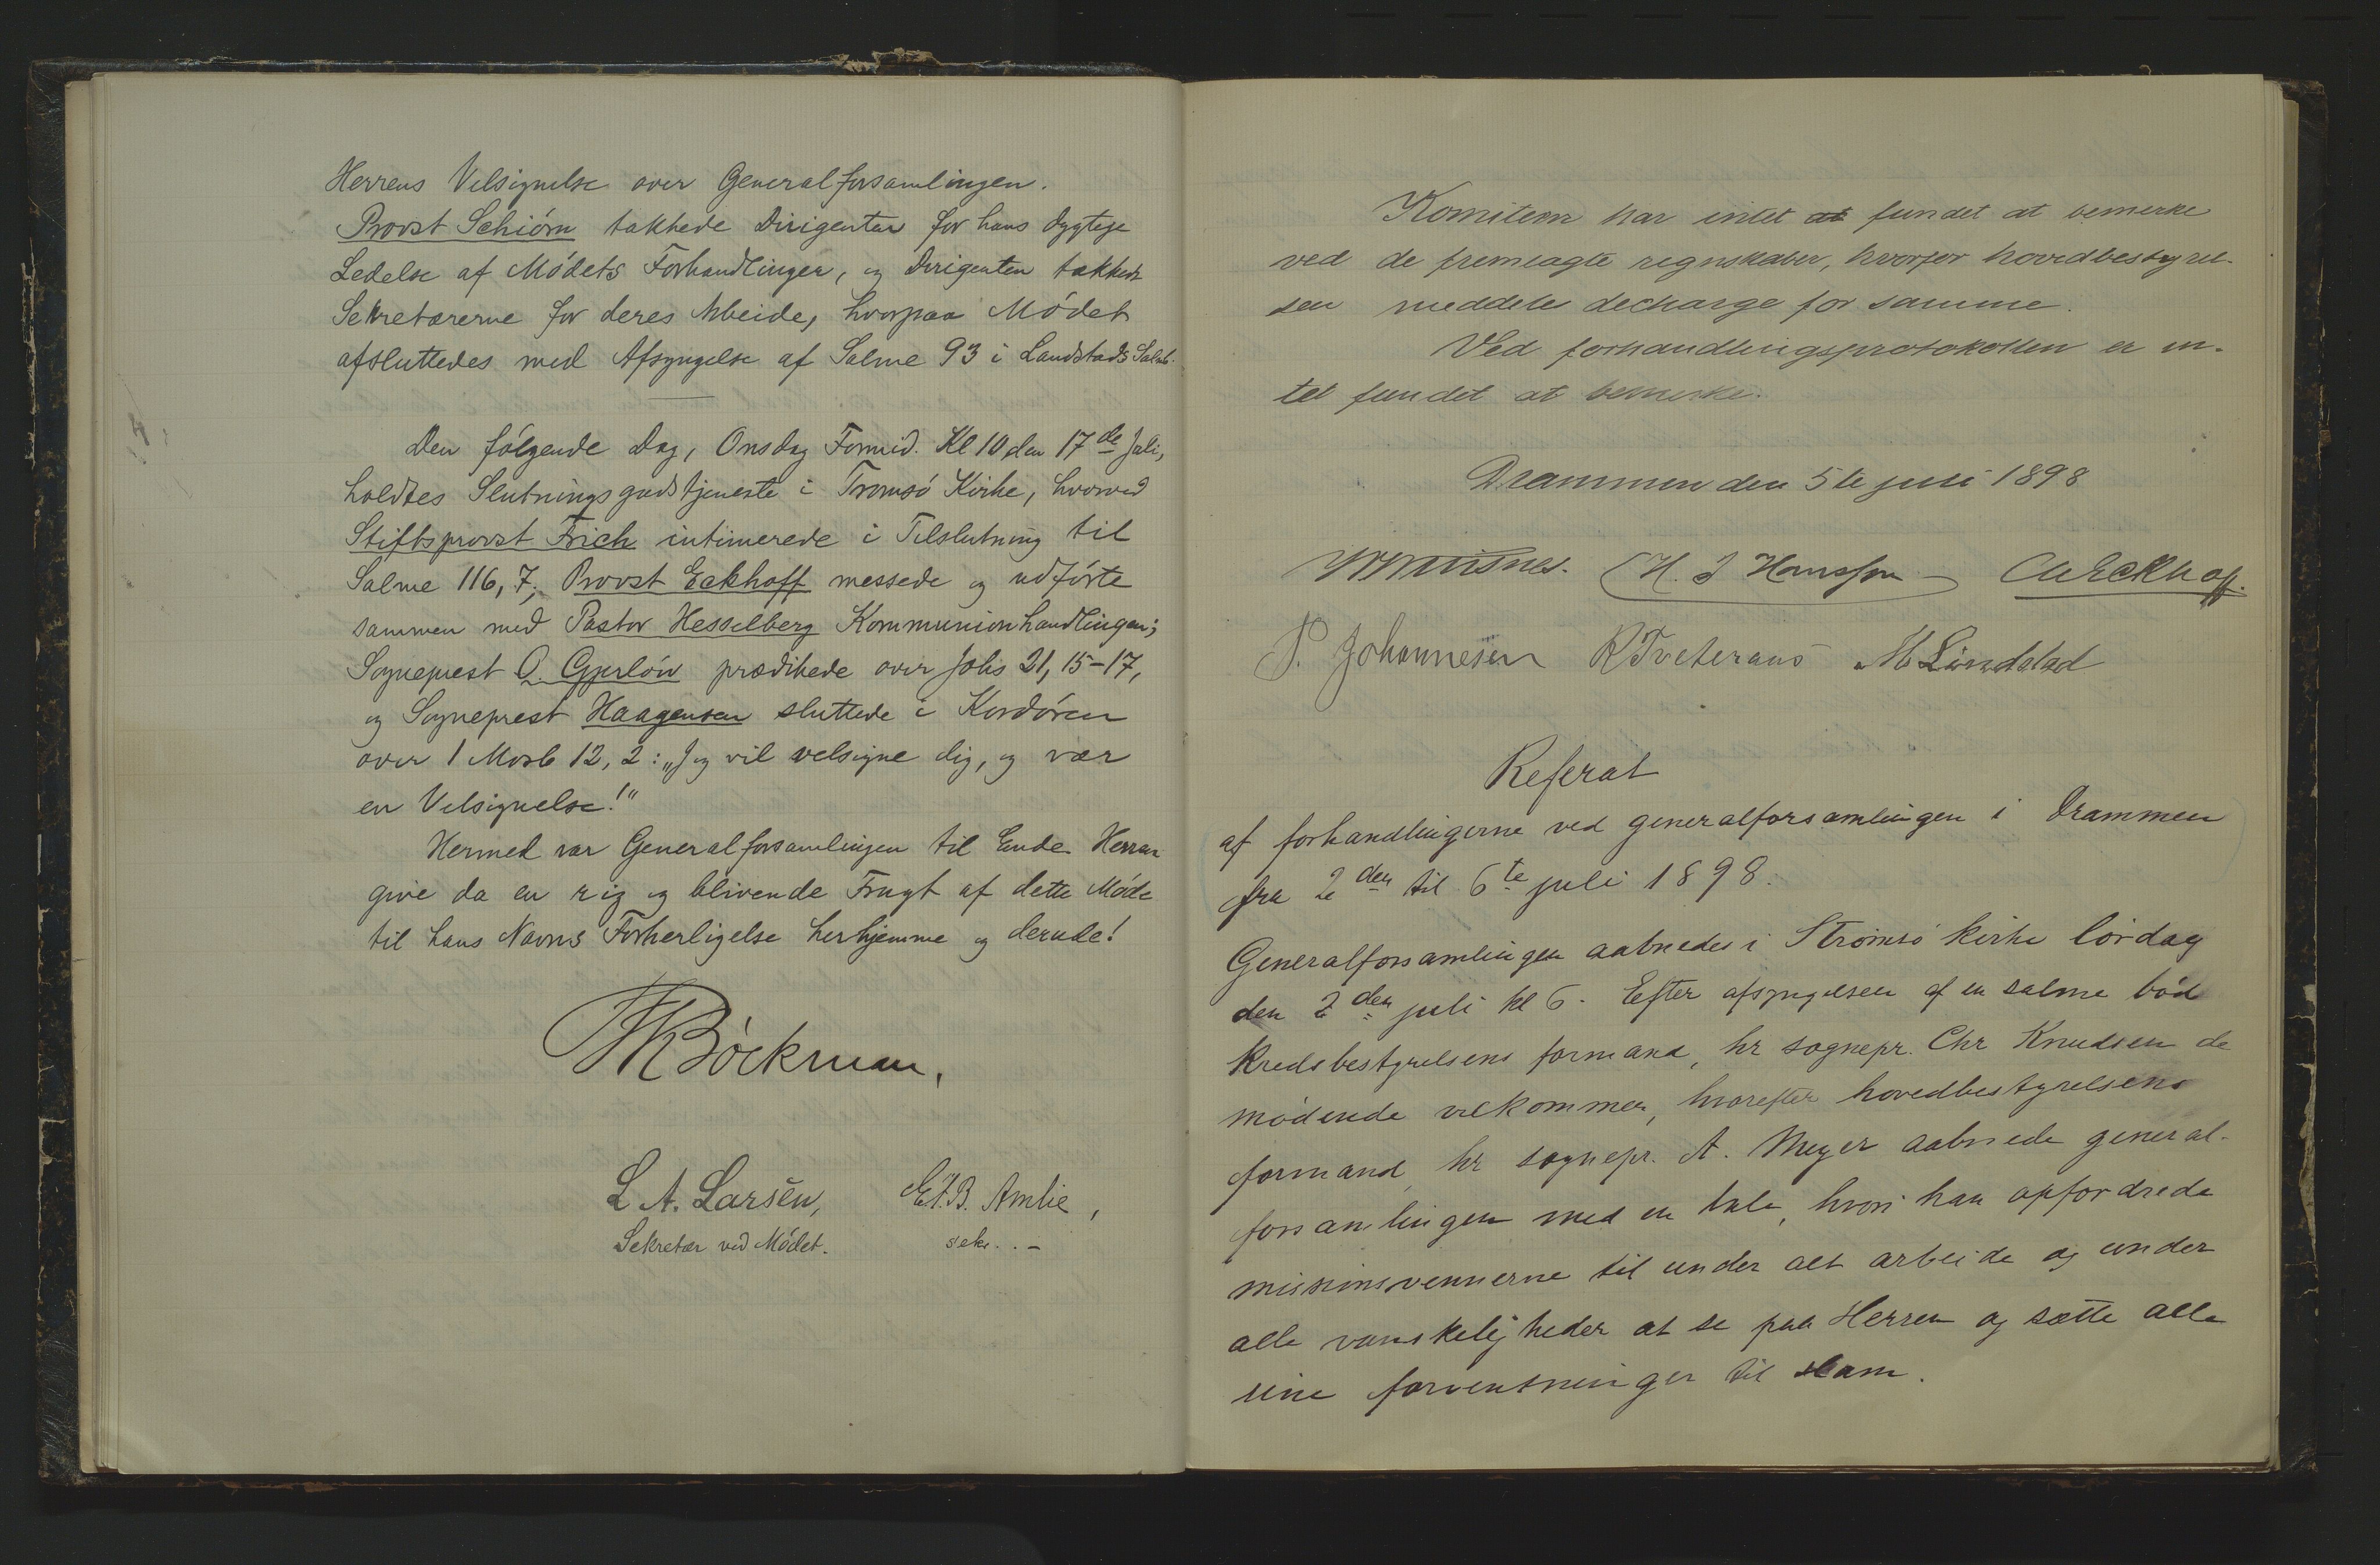 Herrens Velsignelse over Generalforsamlingen.
Provst Schiörn takkede Dirigenten for hans dygtige
Ledelse af Mödets Forhandlinger, og Dirigenten takkede
Sekretærerne for deres Arbeide, hvorpaa Mödet
afsluttedes med Afsyngelse af Salme 93 i Landstads Salmb.
Den fölgende Dag, Onsdag Formid. Kl 10 den 17de Juli,
holdtes Slutningsgudstjeneste i Tromsö Kirke, hvorved
Stiftsprovst Frich intimerede i Tilslutning til
Salme 116, 7; Provst Eckhoff messede og udförte
sammen med Pastor Hesselberg Kommunionhandlingen;
Sogneprest O. Gjerlöw prædikede over Johs 21, 15-17,
og Sogneprest Haagensen sluttede i Kordören
over 1 Mosb 12, 2: „Jeg vil velsigne dig, og vær
en Velsignelse!"
Hermed var Generalforsamlingen til Ende. Herren
give da en rig og blivende Frugt af dette Möde
til hans Navns Forherligelse herhjemme og derude!
Böckman.
L. A. Larsen, E. B. Amlie,
Sekretær ved Mödet. sekr. . –
Komiteen har intet at fundet at bemerke
ved de fremlagte regnskaber, hvorfor hovedbestyrel-
sen meddele decharge for samme.
Ved forhandlingsprotokollen er in-
tet fundet at bemerke.
Drammen den 5te juli 1898
H. J Hansson Eckhoff.
P. Johannesen R Tveteraas M Lindstad
Referat
af forhandlingerne ved generalforsamlingen i Drammen
fra 2den til 6te juli 1898.
Generalforsamlingen aabnedes i Strömsö kirke lördag
den 2den juli kl 6. Efter afsyngelsen af en salme böd
Kredsbestyrelsens formand, hr sognepr. Chr Knudsen de
mödende velkommen, hvorefter hovedbestyrelsens
formand, hr sognepr. A. Meyer aabnede general-
forsamlingen med en tale, hvori han opfordrede
missionsvennerne til under alt arbeide og under
alle vanskeligheder at se paa Herren og sætte alle
sine forventninger til ham.